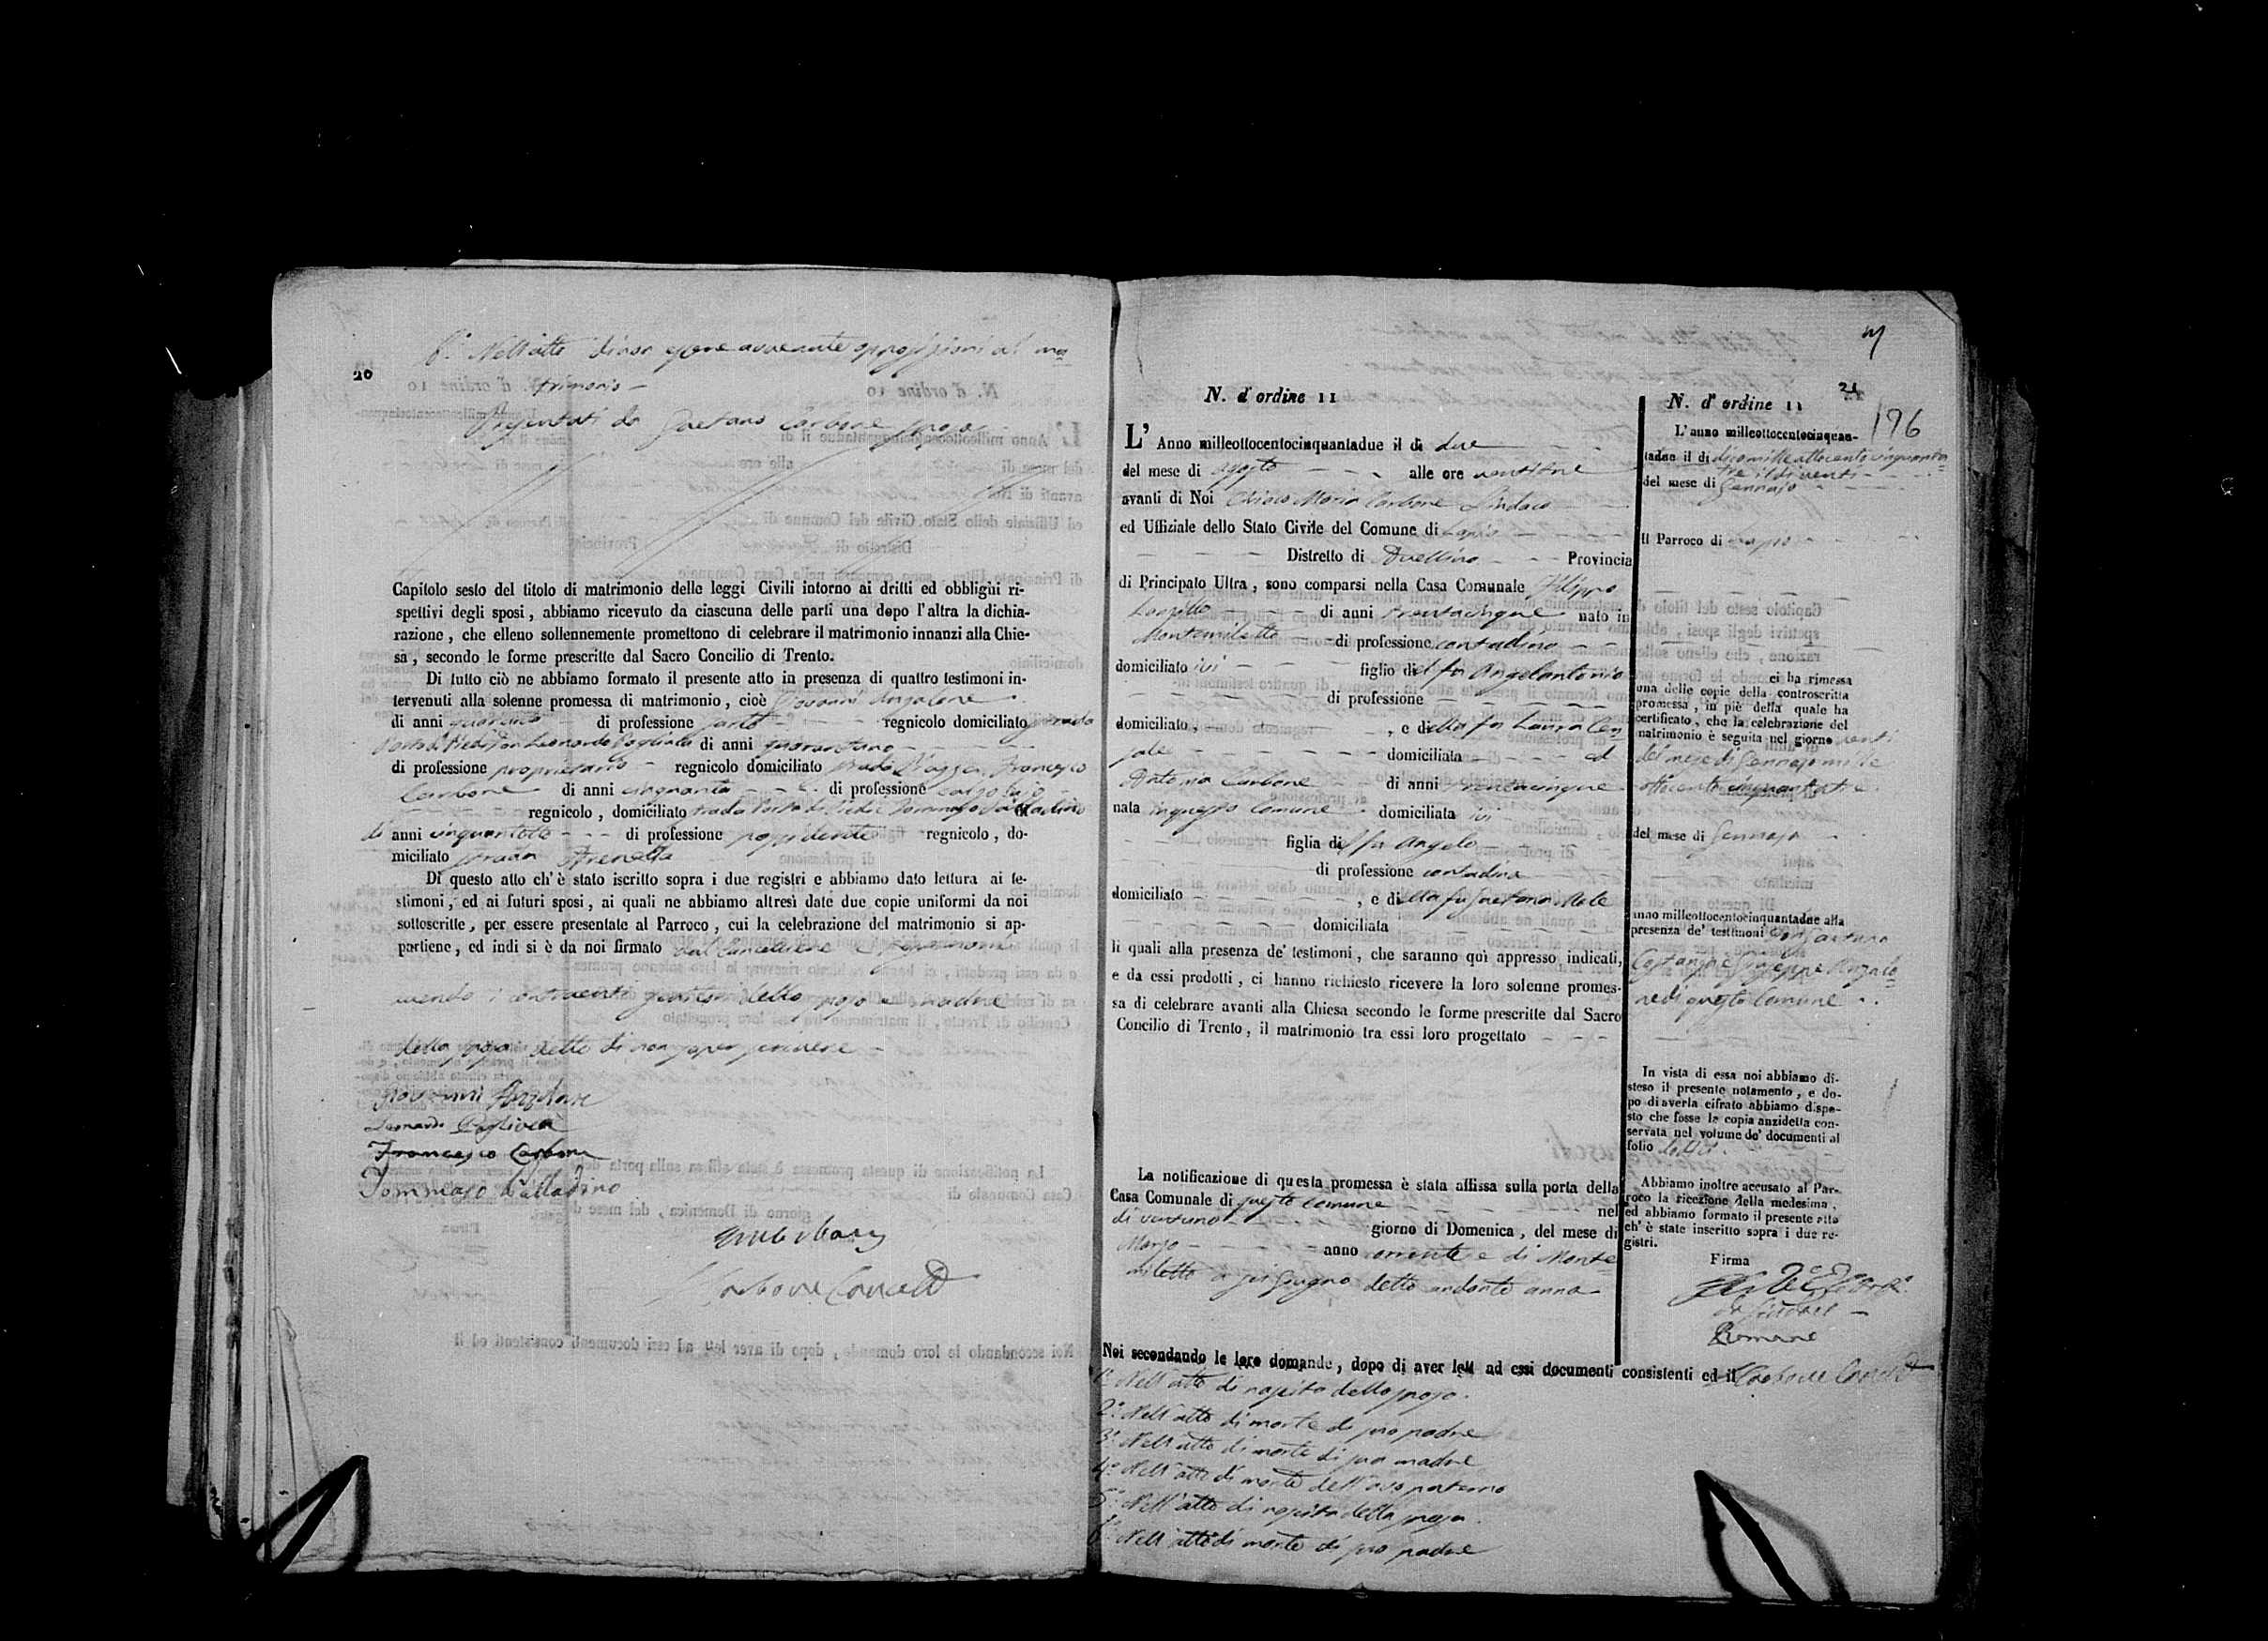 20
6.° Nell'atto di non essere avvenute opposizioni al ma=
trimonio –
Presentati da Gaetano Carbone sposo
Capitolo sesto del titolo di matrimonio delle leggi Civili intorno ai dritti ed obblighi ri-
spettivi degli sposi, abbiamo ricevuto da ciascuna delle parti una dopo l'altra la dichia-
razione, che elleno sollennemente promettono di celebrare il matrimonio innanzi alla Chie-
sa, secondo le forme prescritte dal Sacro Concilio di Trento.
Di tutto ciò ne abbiamo formato il presente atto in presenza di quattro testimoni in-
tervenuti alla solenne promessa di matrimonio, cioè Giovanni Anzalone
di anni di professione sarto regnicolo domiciliato strada
Don Leonardo di anni quarantuno
di professione proprietario regnicolo domiciliato strada Piazza, Francesco
Carbone di anni cinquanta di professione calzolajo
regnicolo, domiciliato strada Porta di Piedi e Tommaso Palladino
di anni cinquantotto di professione possidente regnicolo, do-
miciliato strada Arenella
Di questo atto ch'è stato iscritto sopra i due registri e abbiamo dato lettura ai te-
stimoni, ed ai futuri sposi, ai quali ne abbiamo altresì date due copie uniformi da noi
sottoscritte, per essere presentate al Parroco, cui la celebrazione del matrimonio si ap-
partiene, ed indi si è da noi firmato dal Cancelliere e testimoni
avendo i contraenti genitori dello sposo e madre
della sposa detto di non saper scrivere –
Giovanni Anzalone
Leonardo
Francesco Carbone
Tommaso Palladino
Carbone Canc.
N. d' ordine 11
L' Anno milleottocentocinquantadue il dì due
del mese di agosto alle ore ventitre
avanti di Noi Carbone Sindaco
ed Uffiziale dello Stato Civile del Comune di Lapio
Distretto di Avellino Provincia
di Principato Ultra, sono comparsi nella Casa Comunale Filippo
di anni trentacinque nato in
Montemiletto di professione contadino
domiciliato ivi figlio del fu Angelantonio
di professione
domiciliato, , e della fu Laura
domiciliata ed
Antonia Carbone di anni trentacinque
nata in questo Comune domiciliata ivi
figlia del fu Angelo
di professione contadina
domiciliato , e della fu Gaetana
domiciliata
li quali alla presenza de' testimoni, che saranno quì appresso indicati,
e da essi prodotti, ci hanno richiesto ricevere la loro solenne promes-
sa di celebrare avanti alla Chiesa secondo le forme prescritte dal Sacro
Concilio di Trento, il matrimonio tra essi loro progettato
La notificazione di questa promessa è stata affissa sulla porta della
Casa Comunale di questo Comune nel
dì ventuno giorno di Domenica, del mese di
Marzo anno corrente e di Monte=
miletto a sei Giugno detto andante anno
Noi secondando le loro domande, dopo di aver letti ad essi documenti consistenti ed il
1.° Nell'atto di nascita dello sposo.
2.° Nell'atto di morte di suo padre
3.° Nell'atto di morte di sua madre
4.° Nell'atto di morte dell'avo paterno
5.° Nell'atto di nascita della sposa.
6.° Nell'atto di morte di suo padre
21
196
N. d' ordine 11
L'anno milleottocentocinquan-
tadue il dì dicomille ottocento cinquanta=
tre il dì venti
del mese di Gennajo
Il Parroco di Lapio
ci ha rimessa
una delle copie della controscritta
promessa, in piè della quale ha
certificato, che la celebrazione del
matrimonio è seguita nel giorno venti
del mese di Gennajo mille
ottocento cinquantatre.
del mese di Gennajo
anno milleottocentocinquantadue alla
presenza de' testimoni Don Gaetano
Giuseppe Anzalo=
ne di questo Comune
In vista di essa noi abbiamo di-
steso il presente notamento, e do-
po di averla cifrato abbiamo dispo-
sto che fosse la copia anzidetta con-
servata nel volume de' documenti al
folio
Abbiamo inoltre accusato al Par-
roco la ricezione della medesima,
ed abbiamo formato il presente atto
ch'è stato inscritto sopra i due re-
gistri.
Firma
Romano
Carbone Canc.